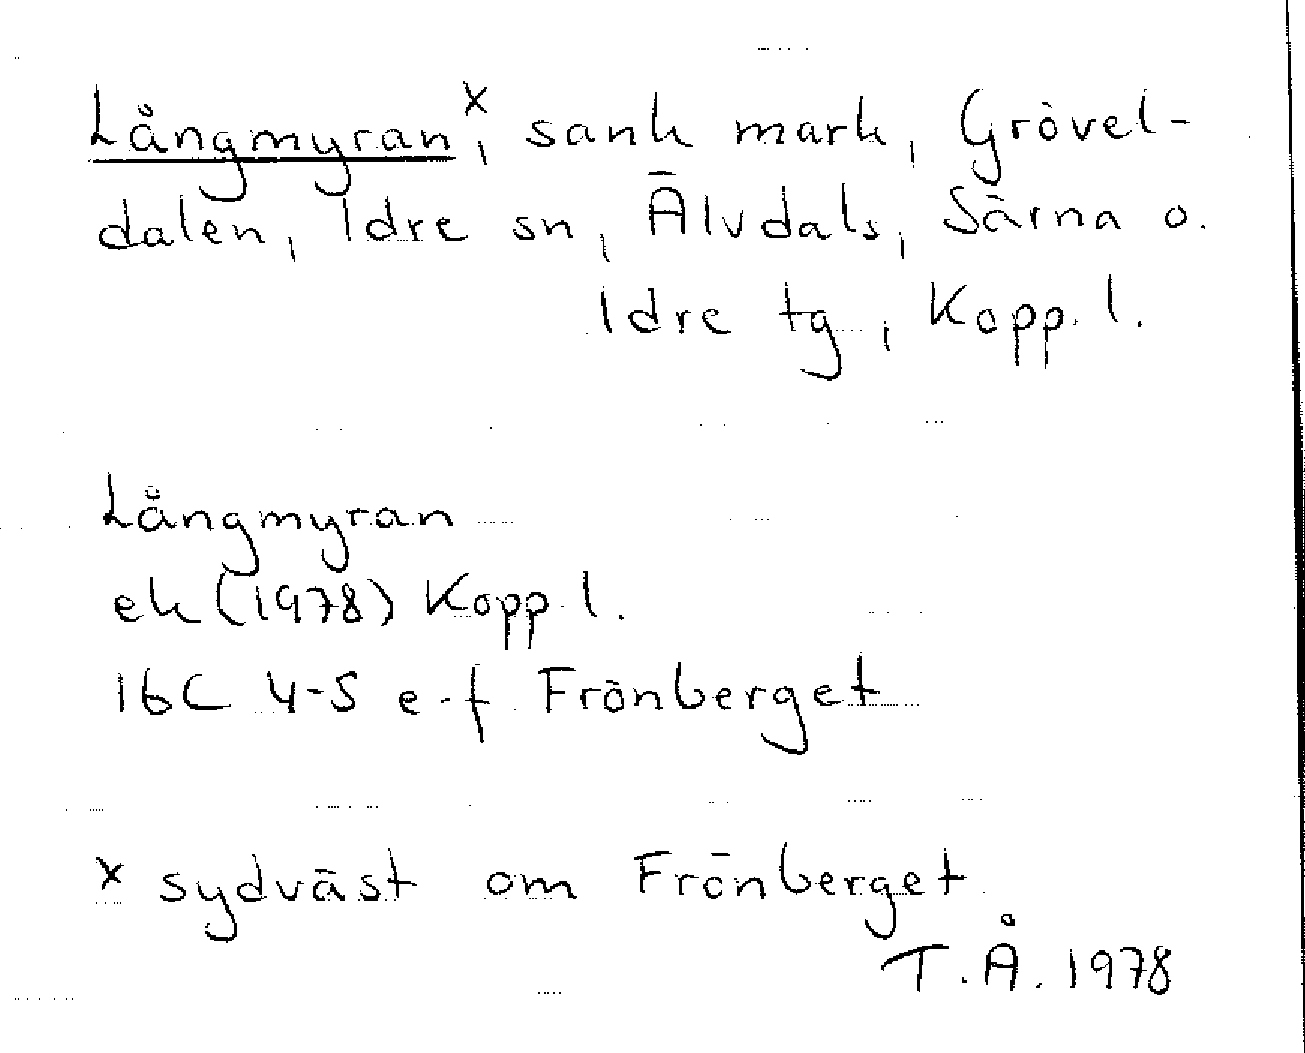 Långmyran x, sank mark, Grövel-
dalen, Idre sn, Älvdals, Särna o.
Idre tg, Kopp. l.
Långmyran
ek (1978) Kopp l.
16C 4-5 e-f Frönberget
x sydväst om Frönberget
T.Å. 1978